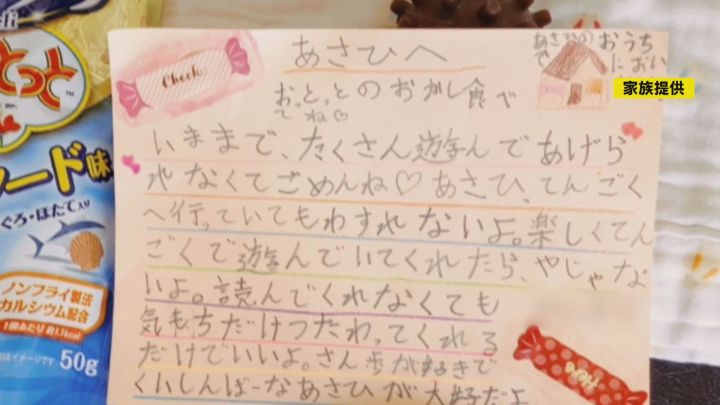 あさひへ
Cheek
あさひの
おうち
で
におい
家族提供
おっとっとのおかし食べ
てね♡
いままで、たくさん遊んであげら
れなくてごめんね♡あさひ、てんごく
へ行っていてもわすれないよ。楽しくてん
ごくで遊んでいてくれたら、やじゃな
いよ。読んでくれなくても
気もちだけつたわってくれる
だけでいいよ。さん歩が好きで
くいしんぼーなあさひが大好だよ
とっと
ード味
ぐろ・ほたて入り
ノンフライ製法
カルシウム配合
1個あたり約1.1kcal
50g